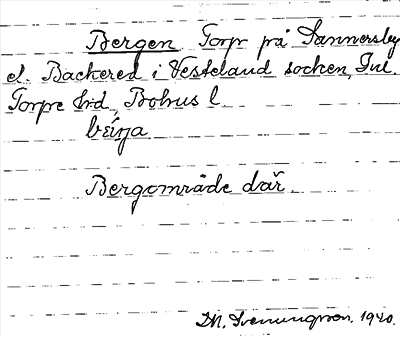 Bergen Torp på Sannersby
el. Backered i Vesteland socken, Inl.
Torpe hd, Bohus l
bẹ́rja
Bergområde där.
M. Svenungson. 1920.